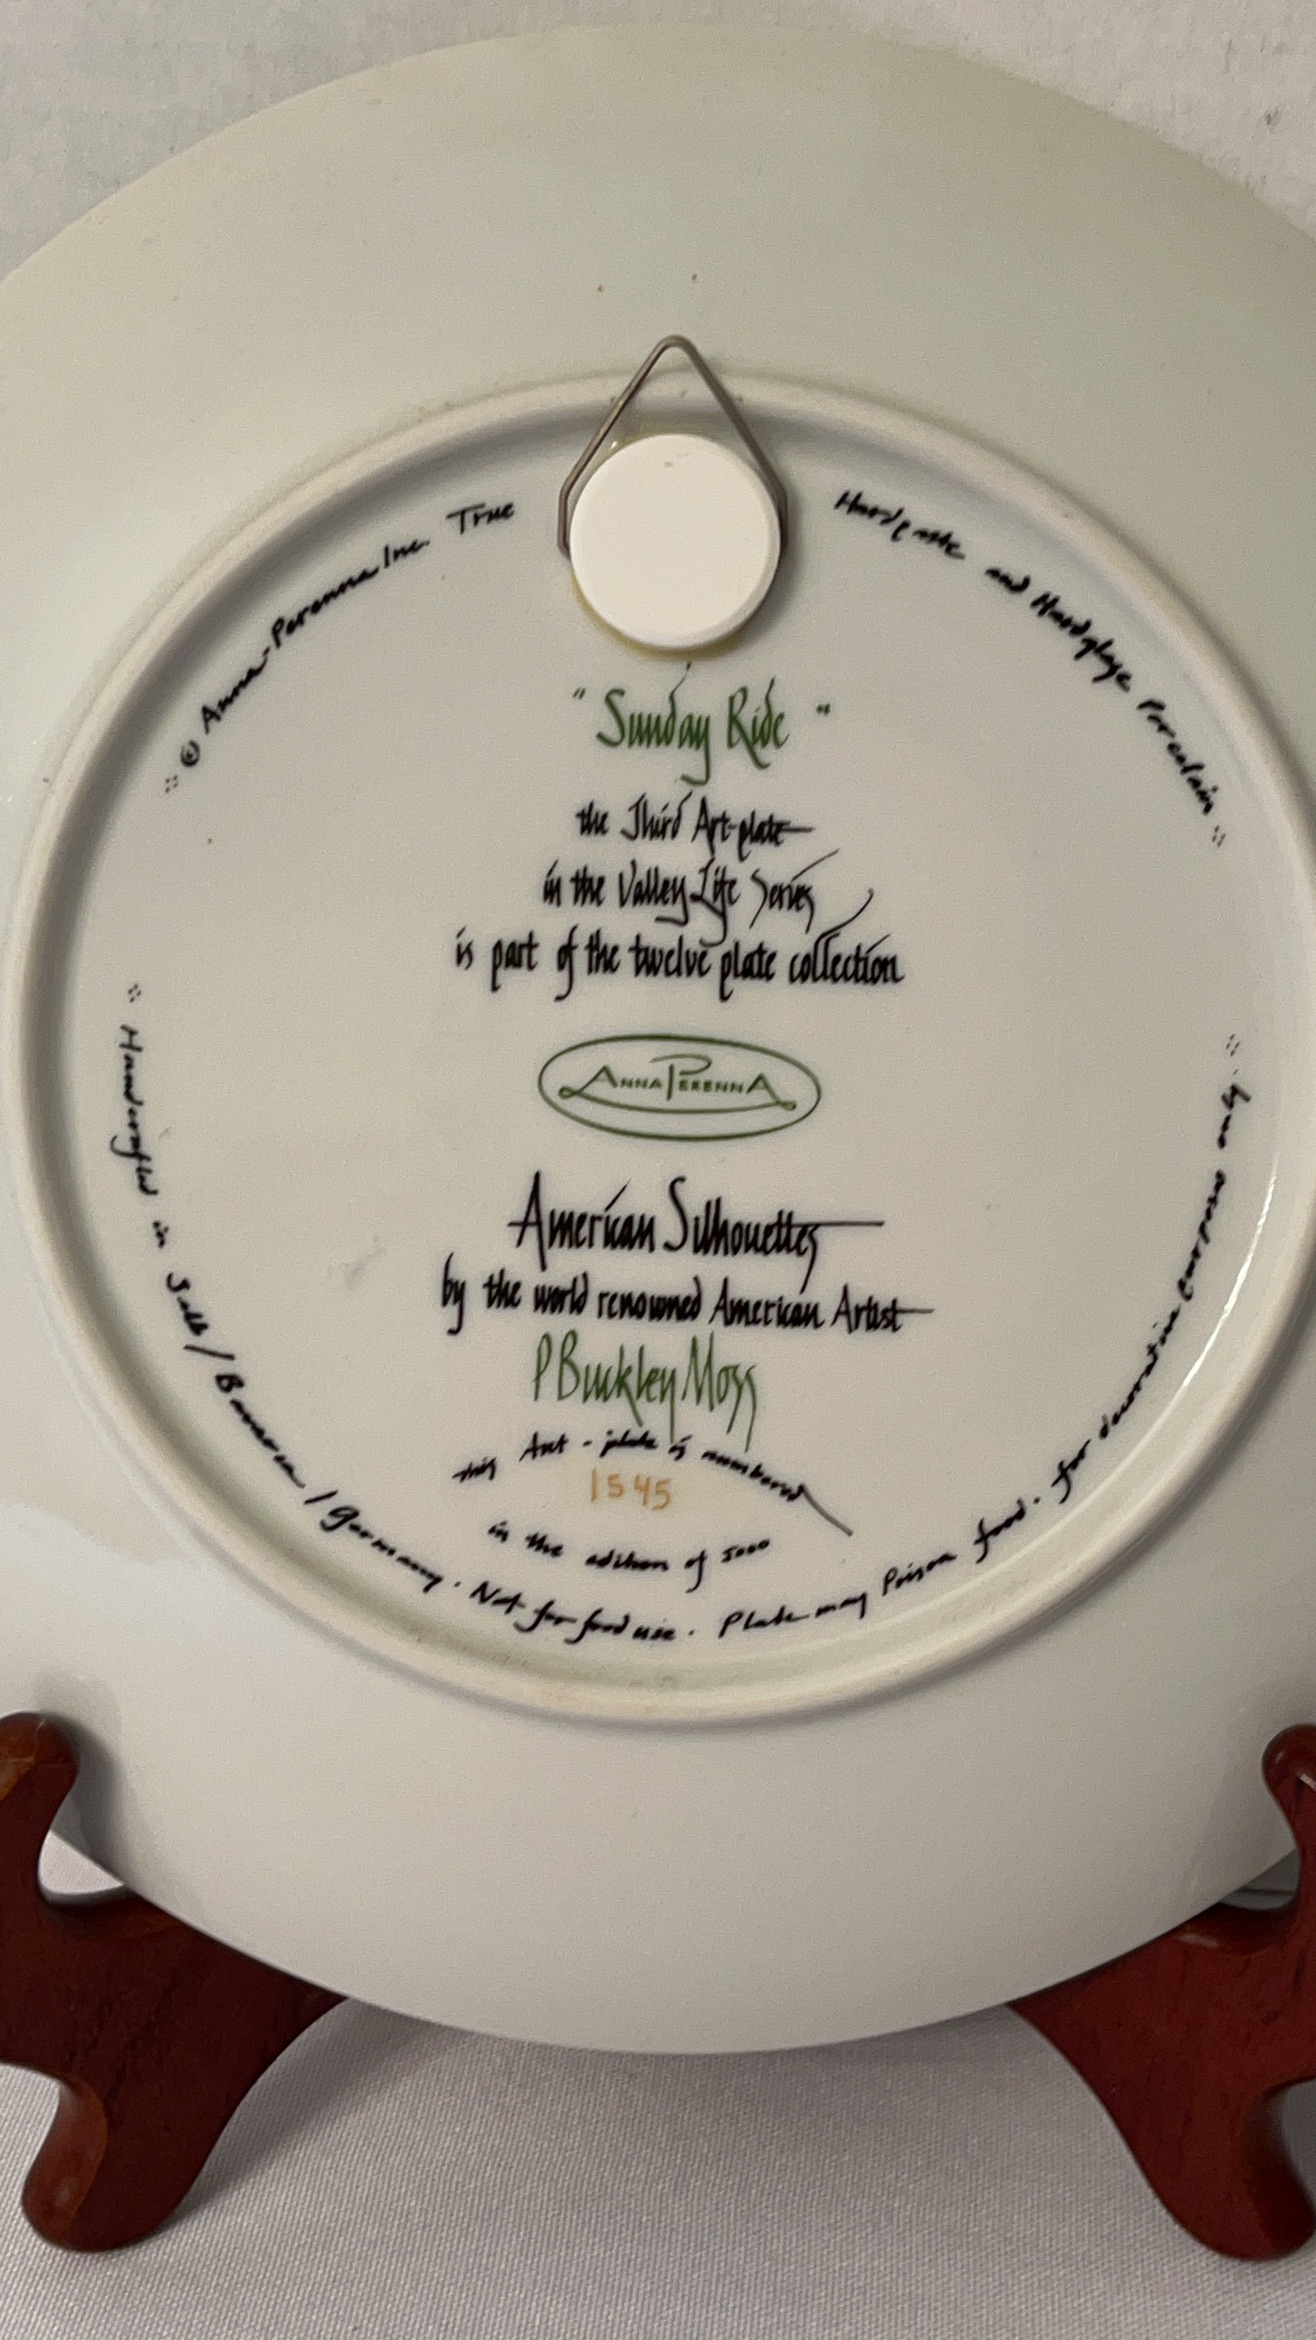 © Anna-Perenna Inc. True Hardpaste and Hardglaze Porcelain
" Sunday Ride "
the Third Art-plate
in the Valley Life Series
is part of the twelve plate collection
ANNA PERENNA
American Silhouettes
by the world renowned American Artist
P Buckley Moss
this Art-plate is numbered
1545
in the edition of 5000
Handcrafted in Selb/Bavaria/Germany. Not for food use. Plate may Poison food. for decorative purposes only.